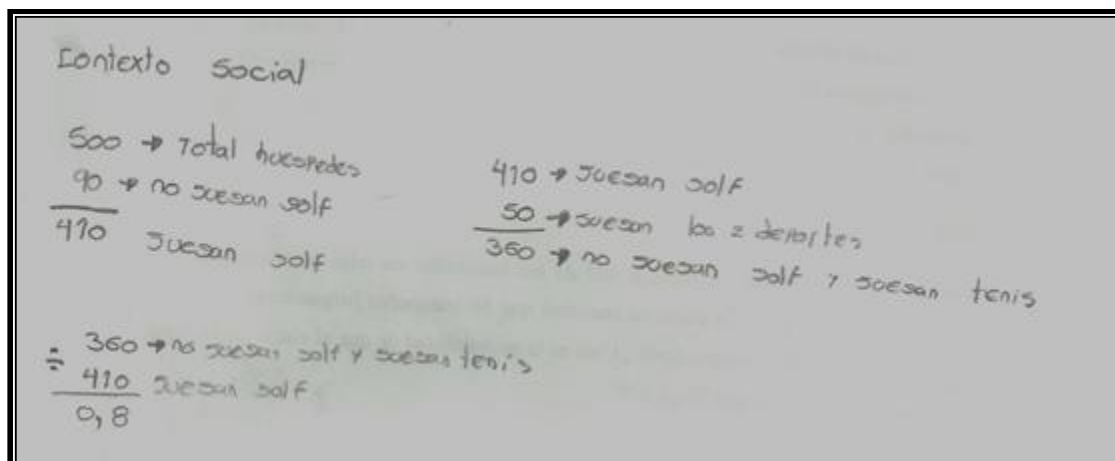 Contexto Social
500 → Total huespedes
90 → no juegan golf
410 juegan golf
410 → juegan golf
50 → juegan los 2 deportes
360 → no juegan golf y juegan tenis
÷ 360 → no juegan golf y juegan tenis
410 juegan golf
0,8